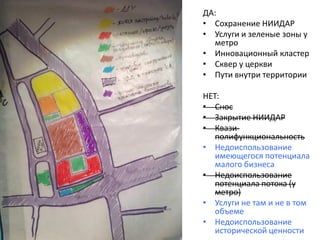 ДА:
• Сохранение НИИДАР
• Услуги и зеленые зоны у
метро
• Инновационный кластер
• Сквер у церкви
• Пути внутри территории
НЕТ:
• Снос
• Закрытие НИИДАР
• Квази-
полифункциональность
• Недоиспользование
имеющегося потенциала
малого бизнеса
• Недоиспользование
потенциала потока (у
метро)
• Услуги не там и не в том
объеме
• Недоиспользование
исторической ценности